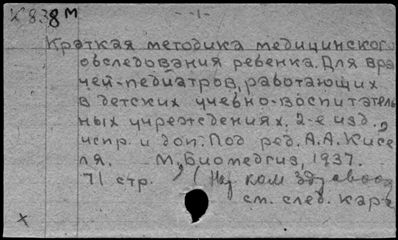 К838М -1-
Краткая методика медицинского
обследования ребенка. Для вра
чей-педиатров, работающих
в детских учебно-воспитатель
ных учреждениях. 2-е изд.,
испр. и доп. Под ред. А.А. Кисе
ля. М, Биомедгиз, 1937.
71 стр. (Нар ком здр
см. след. карт
x